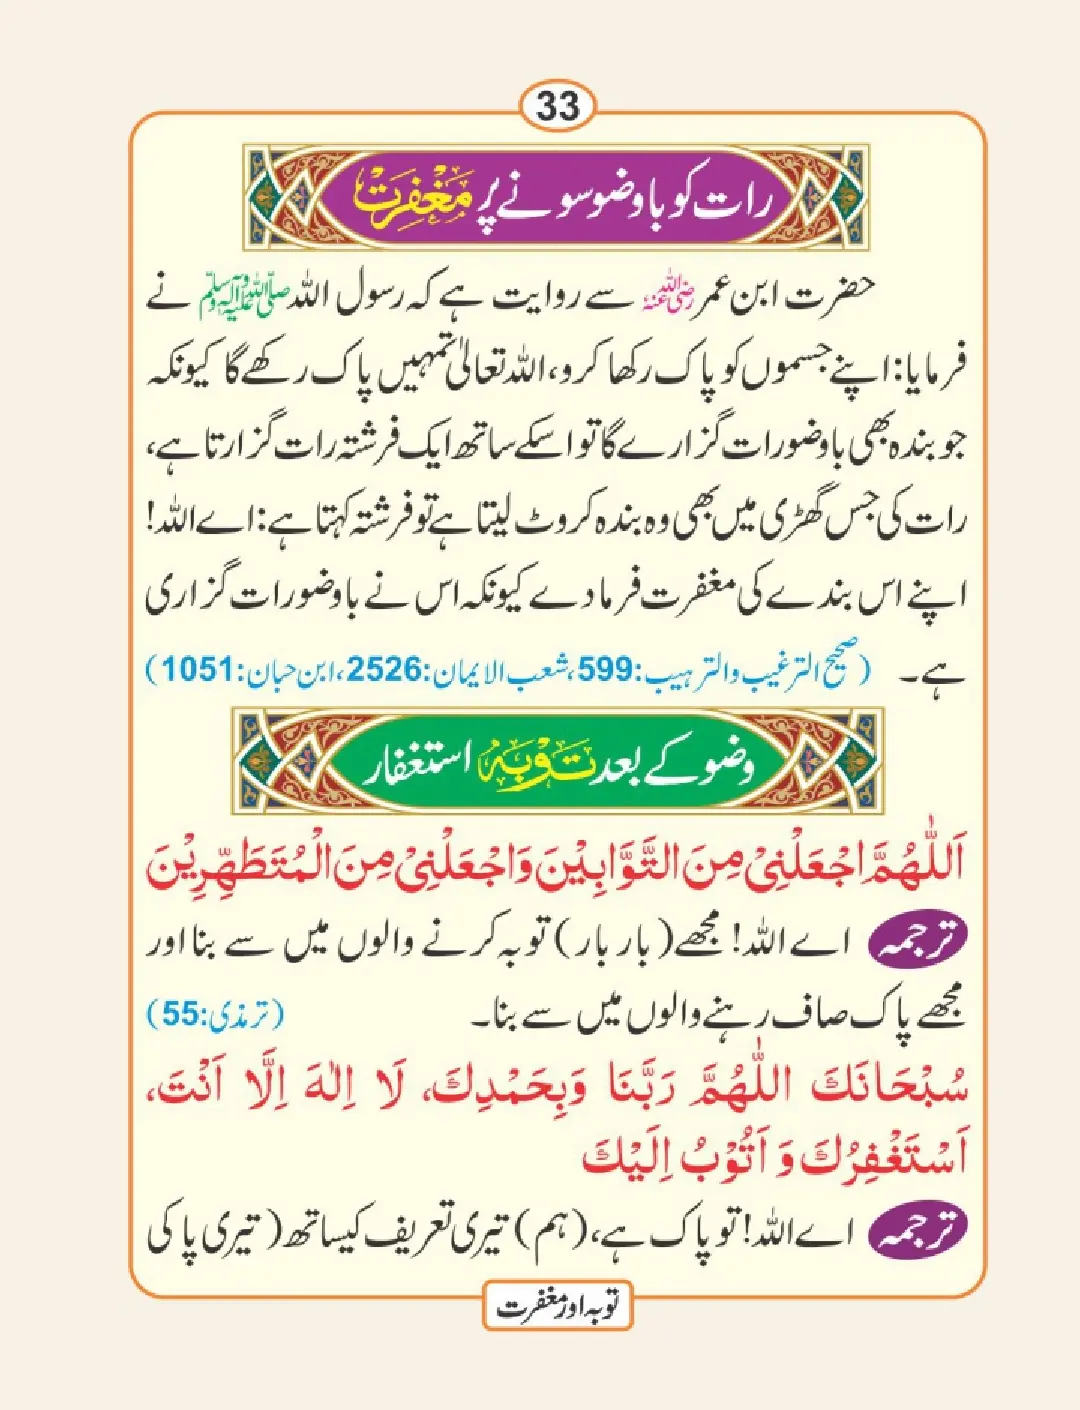 33
رات کو باوضو سونے پر مَغْفِرَتْ
حضرت ابن عمر رضی اللہ عنہ سے روایت ہے کہ رسول اللہ صلی اللہ علیہ وآلہ وسلم نے
فرمایا: اپنے جسموں کو پاک رکھا کرو، اللہ تعالیٰ تمہیں پاک رکھے گا کیونکہ
جو بندہ بھی باوضو رات گزارے گا تو اسکے ساتھ ایک فرشتہ رات گزارتا ہے،
رات کی جس گھڑی میں بھی وہ بندہ کروٹ لیتا ہے تو فرشتہ کہتا ہے: اے اللہ!
اپنے اس بندے کی مغفرت فرما دے کیونکہ اس نے باوضو رات گزاری
ہے۔ (صحیح الترغیب والترہیب:599، شعب الایمان:2526، ابن حبان:1051)
وضو کے بعد تَوْبَہُ استغفار
اَللّٰهُمَّ اجْعَلْنِیْ مِنَ التَّوَّابِیْنَ وَاجْعَلْنِیْ مِنَ الْمُتَطَهِّرِیْنَ
ترجمہ اے اللہ! مجھے (بار بار) توبہ کرنے والوں میں سے بنا اور
مجھے پاک صاف رہنے والوں میں سے بنا۔ (ترمذی:55)
سُبْحَانَكَ اللّٰهُمَّ رَبَّنَا وَبِحَمْدِكَ، لَا اِلٰهَ اِلَّا اَنْتَ،
اَسْتَغْفِرُكَ وَ اَتُوْبُ اِلَیْكَ
ترجمہ اے اللہ! تو پاک ہے، (ہم) تیری تعریف کیساتھ (تیری پاکی
توبہ اور مغفرت